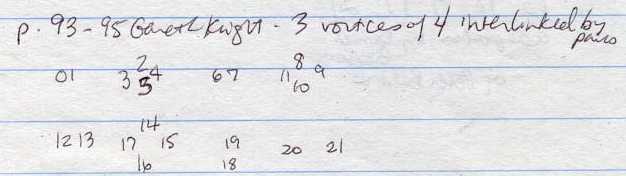 p. 93-95 Gareth Knight - 3 vortices of 4 interlinked by pairs
2 8
01 3 4 67 11 9
5 10
14
12 13 17 15 19 20 21
16 18